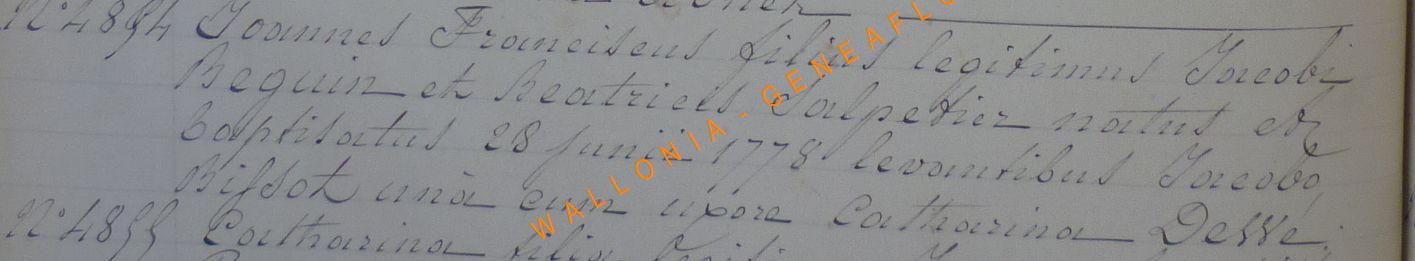 N° 4854 Joannes Franciscus filius legitimus Jacobi
Beguin et Beatricis Salpetier natus et
baptisatus 28 junii 1778 levantibus Jacobo
Bissot unà cum uxore Catharina Dessé.
N° 4855 Catharina filia
WALLONIA - GENEAFL